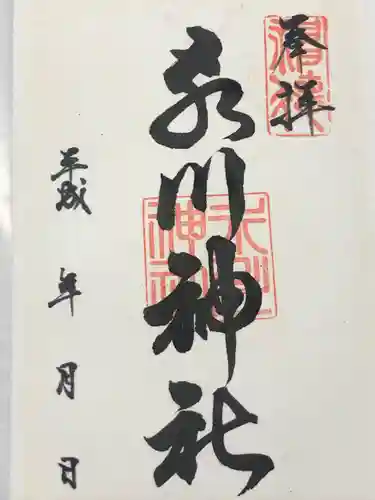 奉拝
氷川神社
氷川
神社
平成 年 月 日